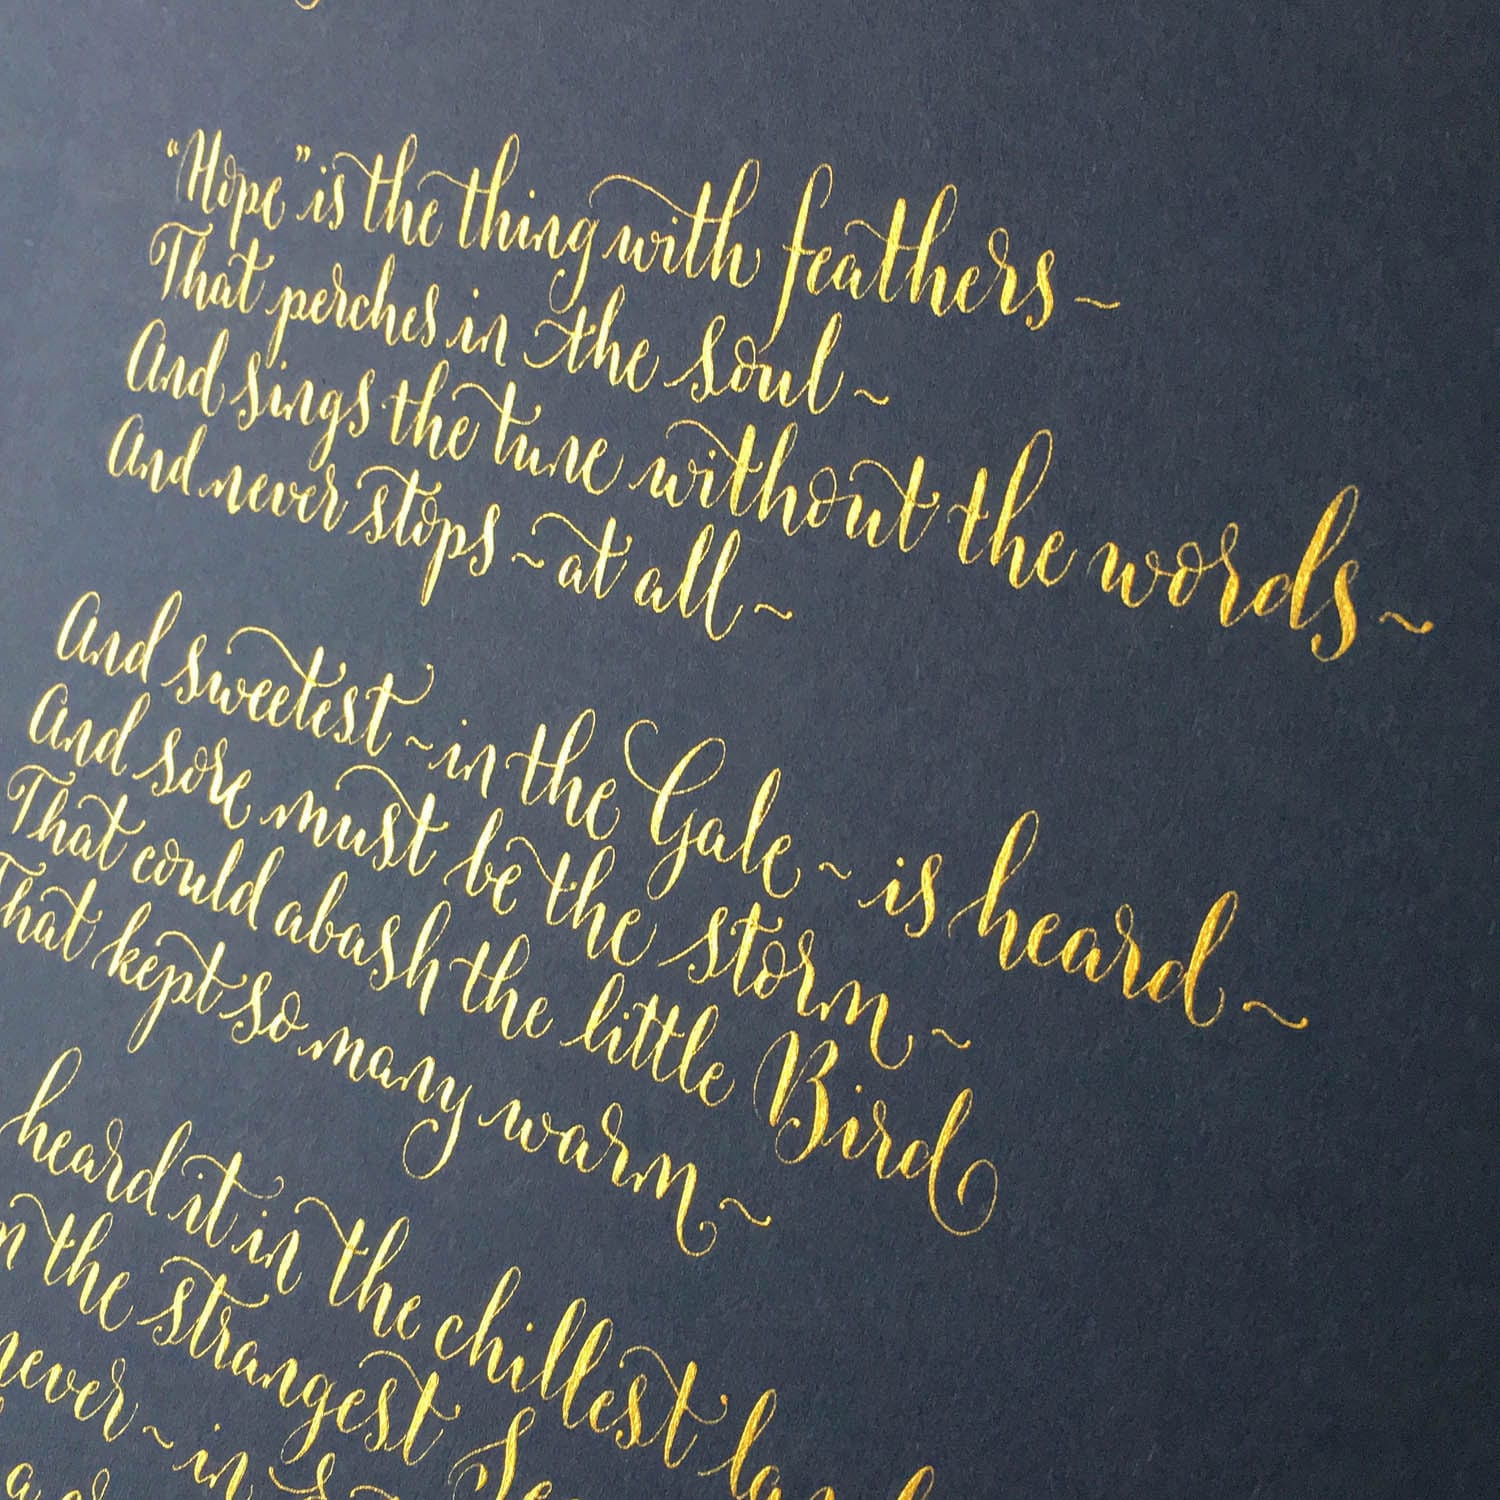 “Hope” is the thing with feathers ~
That perches in the soul ~
And sings the tune without the words ~
And never stops ~ at all ~
And sweetest ~ in the Gale ~ is heard ~
And sore must be the storm ~
That could abash the little Bird
That kept so many warm ~
heard it in the chillest
the strangest
never ~ in